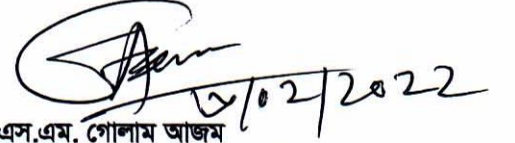 /02/2022
এস.এম. গোলাম আজম